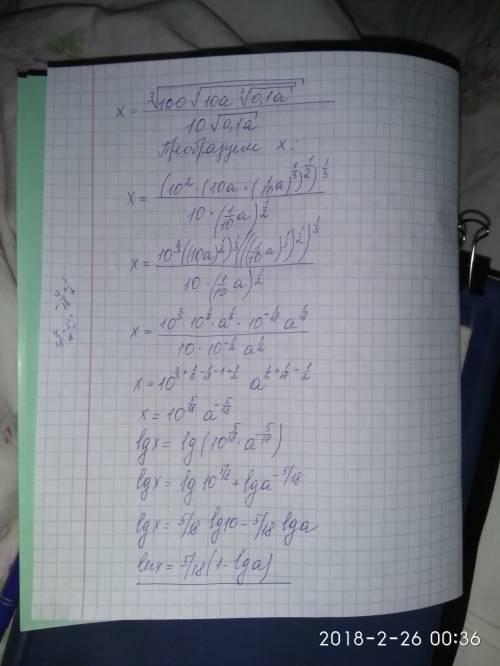 x = \frac{\sqrt[3]{100\sqrt{10a\sqrt[3]{0,1a}}}}{10\sqrt{0,1a}}
Преобразуем x:
x = \frac{(10^2 \cdot (10a \cdot (\frac{1}{10}a)^{\frac{1}{3}})^{\frac{1}{2}})^{\frac{1}{3}}}{10 \cdot (\frac{1}{10}a)^{\frac{1}{2}}}
x = \frac{10^{\frac{2}{3}}((10a)^{\frac{1}{2}})^{\frac{1}{3}}(((\frac{1}{10}a)^{\frac{1}{3}})^{\frac{1}{2}})^{\frac{1}{3}}}{10 \cdot (\frac{1}{10}a)^{\frac{1}{2}}}
x = \frac{10^{\frac{2}{3}} \cdot 10^{\frac{1}{6}} \cdot a^{\frac{1}{6}} \cdot 10^{-\frac{1}{18}} a^{\frac{1}{18}}}{10 \cdot 10^{-\frac{1}{2}} a^{\frac{1}{2}}}
x = 10^{\frac{2}{3}+\frac{1}{6}-\frac{1}{18}-1+\frac{1}{2}} a^{\frac{1}{6}+\frac{1}{18}-\frac{1}{2}}
x = 10^{\frac{5}{18}} a^{-\frac{5}{18}}
lgx = lg(10^{\frac{5}{18}} \cdot a^{-\frac{5}{18}})
lgx = lg 10^{5/18} + lga^{-5/18}
lgx = 5/18 lg10 - 5/18 lga
lgx = 5/18 (1 - lga)
2018-2-26 00:36